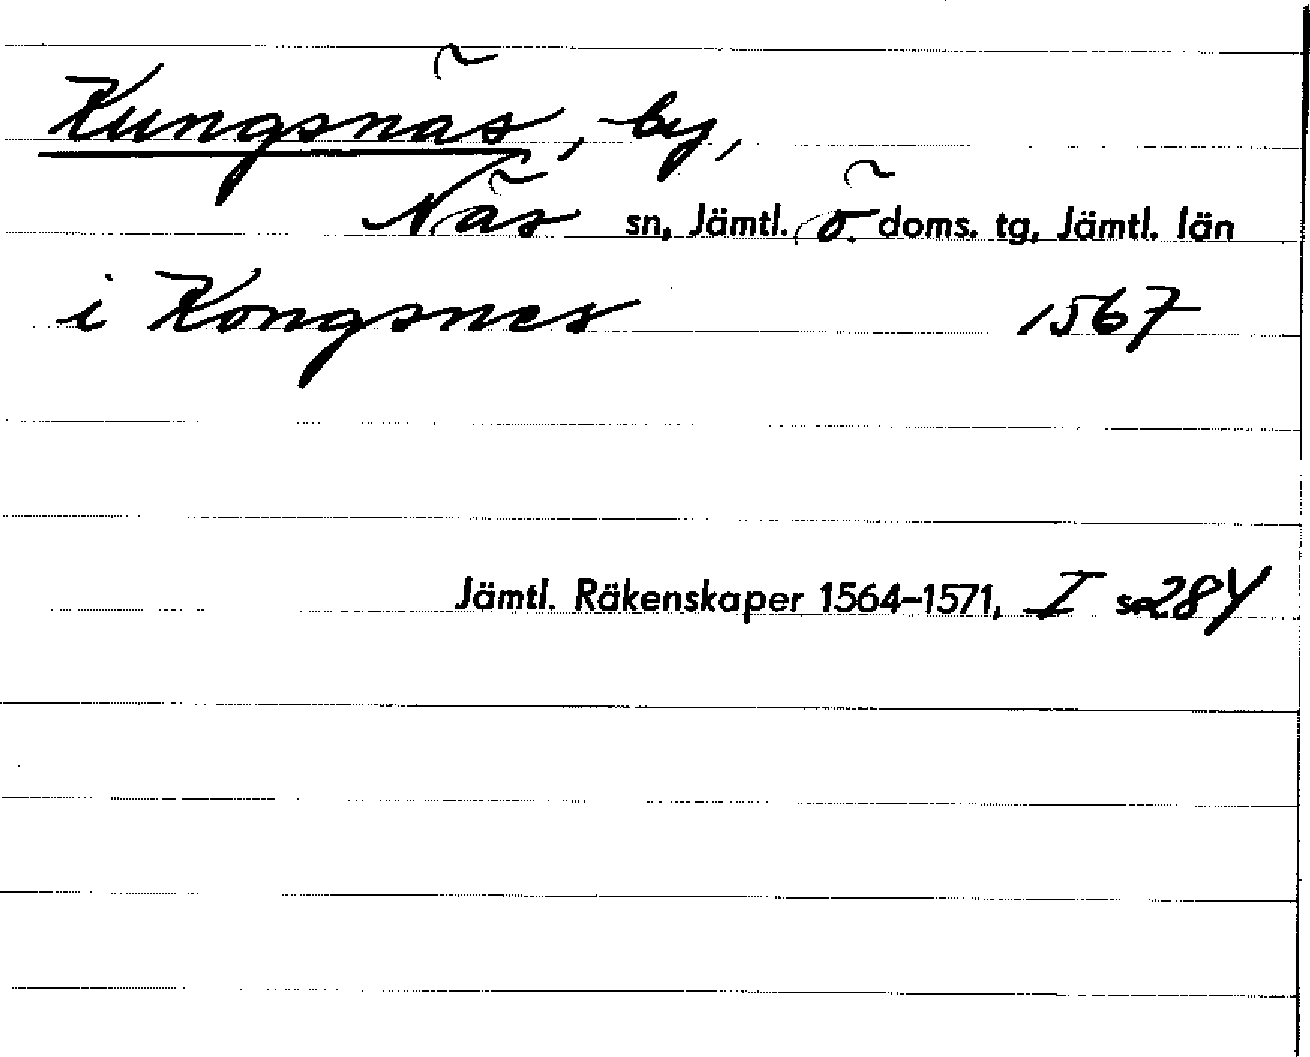 Kungsnäs, by,
Näs sn, Jämtl. ö. doms. tg, Jämtl. län
i Kongsnes 1567
Jämtl. Räkenskaper 1564–1571, I s. 284